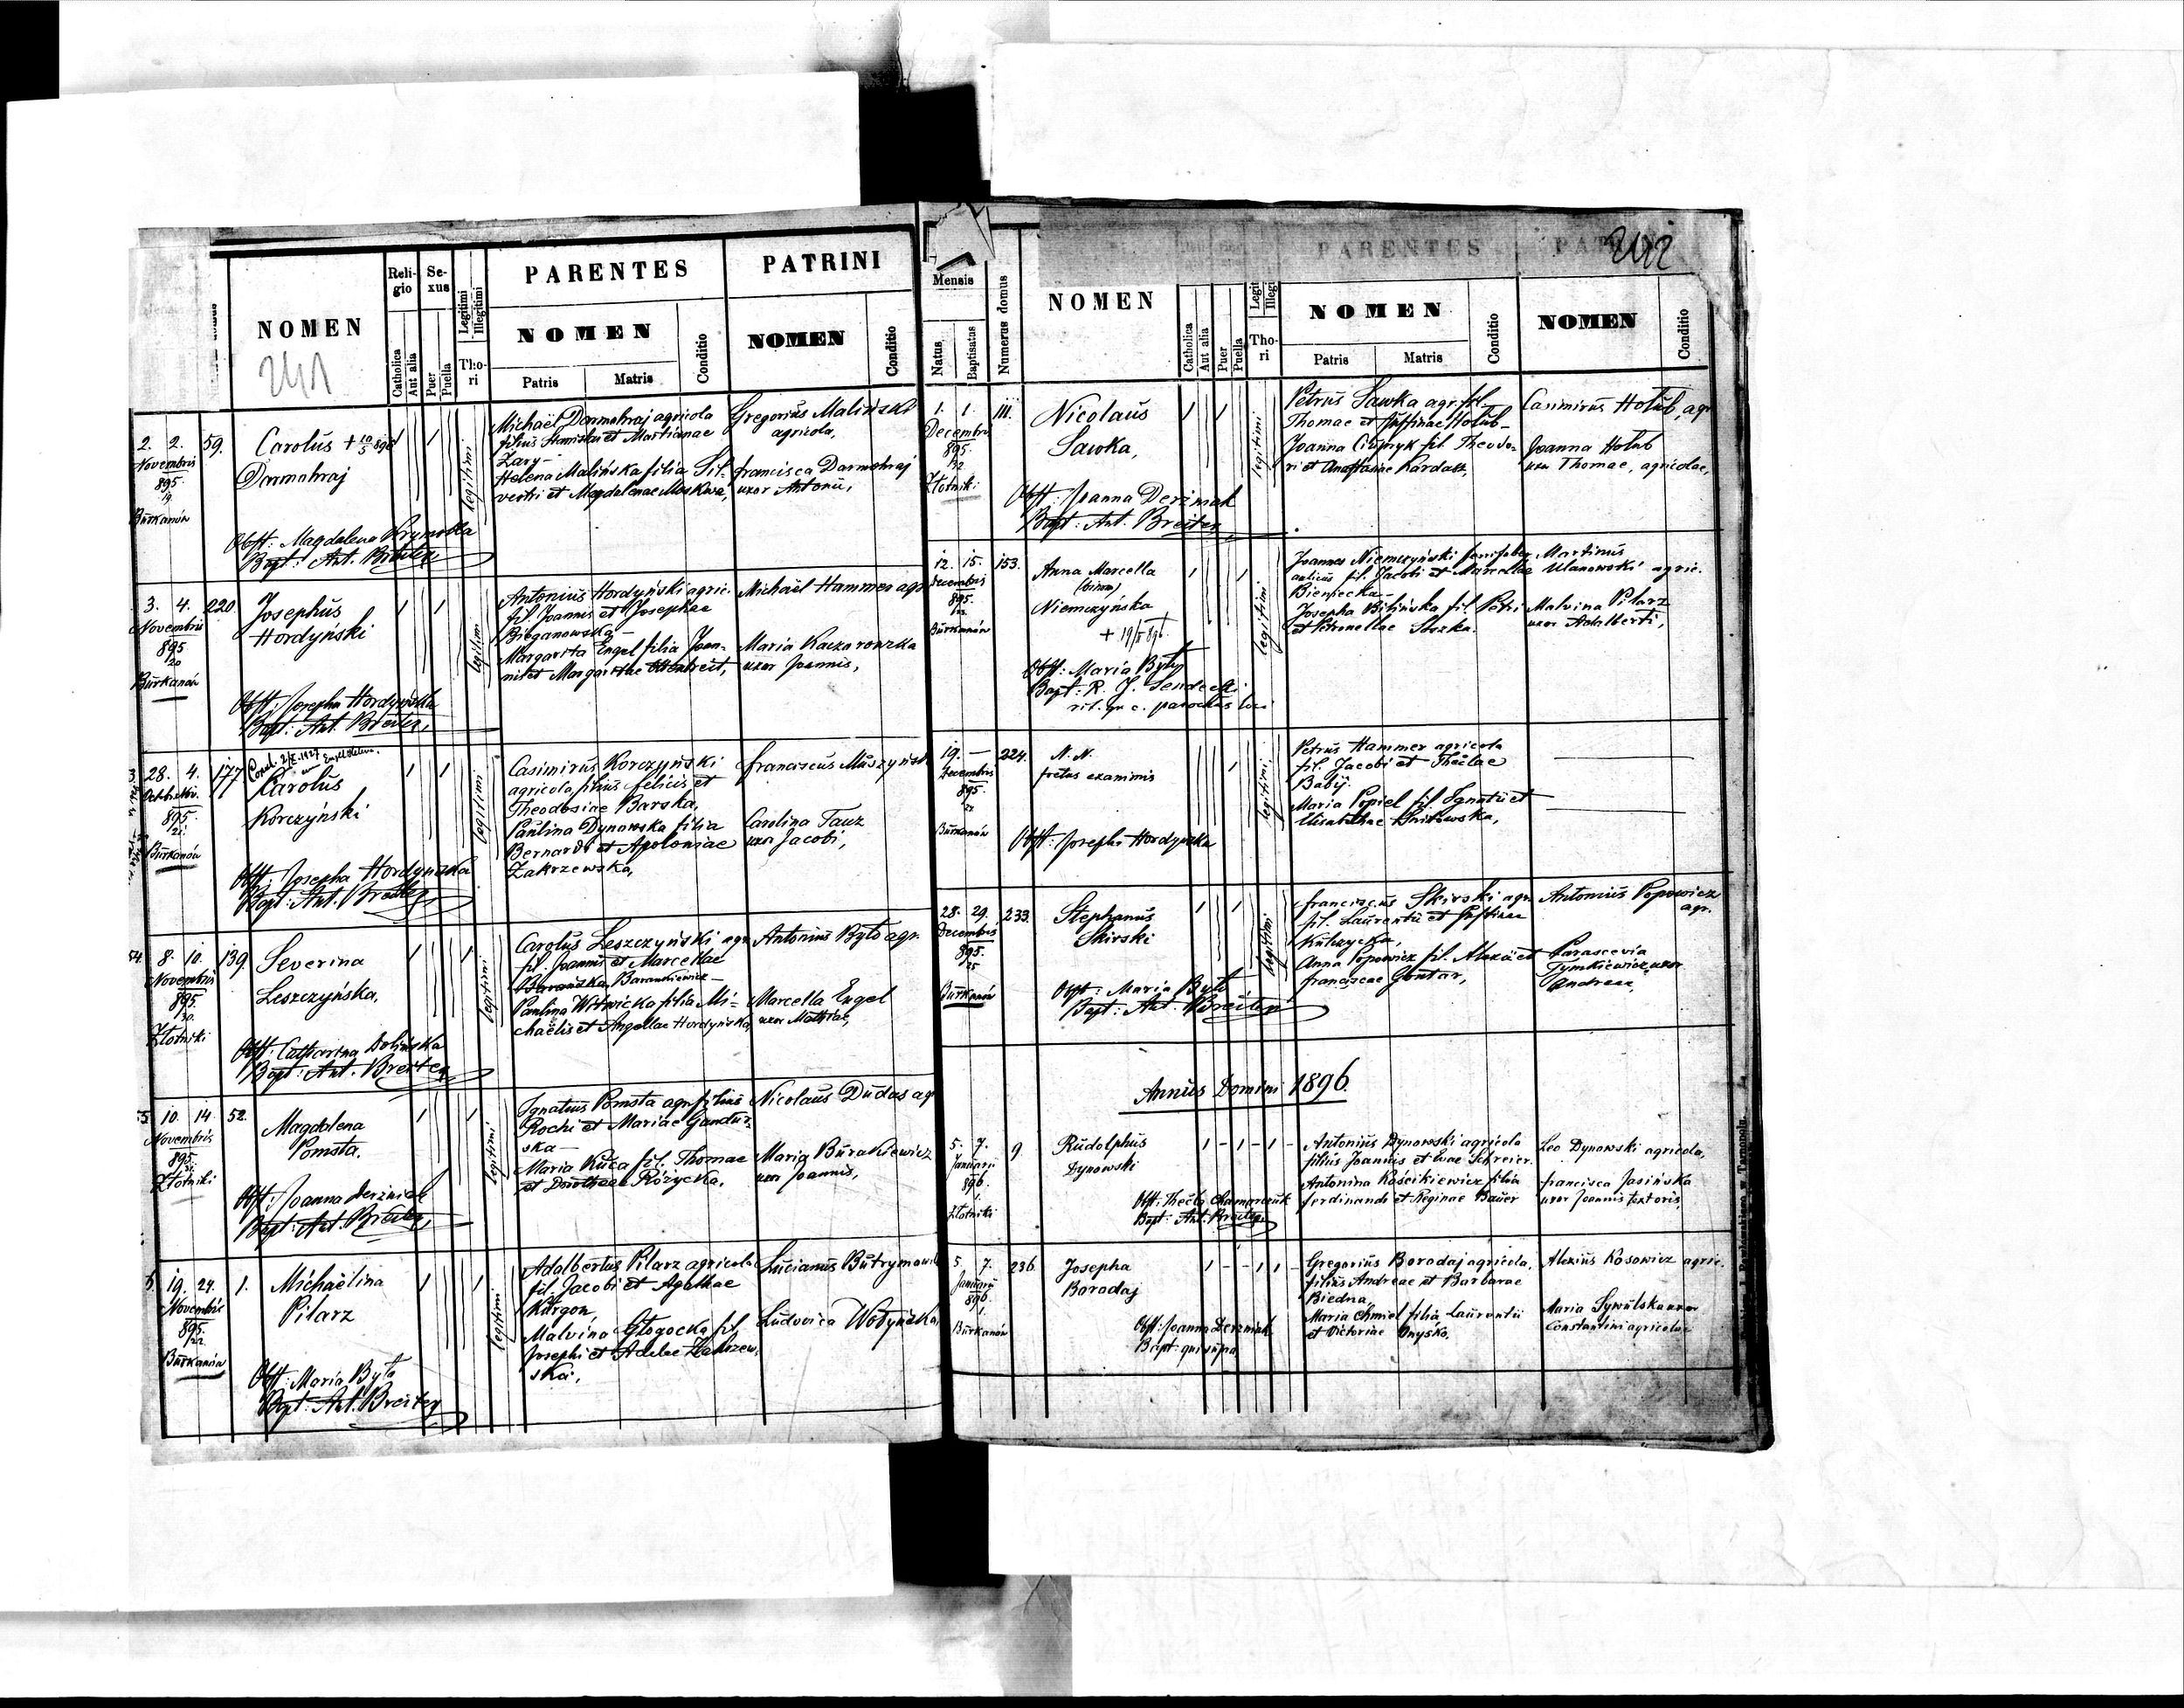 NOMEN
241
Reli-
gio
Se-
xus
Legitimi
Illegitimi
Tho-
ri
Catholica
Aut alia
Puer
Puella
PARENTES
NOMEN
Patris
Matris
Conditio
PATRINI
NOMEN
Conditio
2. 2.
Novembris
895
19
Burkanów
59.
Carolus + 10/3 896
Darmohraj
legitimi
Michaël Darmohraj agricola
filius Stanislai et Martianae
Zary –
Helena Malińska filia Sil-
vestri et Magdalenae Moskwa,
Gregorius Maliński
agricola,
Francisca Darmohraj
uxor Antonii,
Obst: Magdalena
Bapt: Ant. Breiter
3. 4.
Novembris
895
20
Burkanów
220.
Josephus
Hordyński
legitimi
Antonius Hordyński agric.
fil. Joannis et Josephae
Bieganowska –
Margarita Engel filia Joan-
nis et Margarithae
Michaël Hammer agr
Maria Kaczorowska
uxor Joannis,
Obst: Josepha Hordyńska
Bapt: Ant. Breiter,
28. 4.
Octob. Nov.
895
21
Burkanów
177
Copul. 2/X. 1927
Carolus
Korczyński
legitimi
Casimirus Korczyński
agricola, filius Felicis et
Theodosiae Barska,
Paulina Dynowska filia
Bernardi et Apoloniae
Zakrzewska,
Franciscus Muszyński
Carolina Tauz
uxor Jacobi,
Obst: Josepha Hordyńska
Bapt: Ant. Breiter
54.
8. 10.
Novembris
895.
30.
Złotniki
139.
Severina
Leszczyńska,
legitimi
Carolus Leszczyński agr.
fil. Joannis et Marcellae
Barańska, Barankiewicz –
Paulina Witwicka filia Mi-
chaëlis et Angellae Hordyńska,
Antonius Byto agr.
Marcella Engel
uxor Mathiae,
Obst: Catharina Dolińska
Bapt: Ant. Breiter
10. 14.
Novembris
895.
31.
Złotniki
52.
Magdalena
Pomsta.
legitimi
Ignatius Pomsta agr. filius
Rochi et Mariae Gandur-
ska –
Maria Kuca fil. Thomae
et Dorotheae Różycka,
Nicolaus Dudas ag
Maria Burakiewicz
uxor Joannis,
Obst: Joanna Derżniak
Bapt: Ant. Breiter,
19. 24.
Novembris
895.
22.
Burkanów
1.
Michaëlina
Pilarz
legitimi
Adalbertus Pilarz agricola
fil. Jacobi et Agathae
Kurgon,
Malvina Głogocka fil.
Josephi et Adelae Zakrzew-
ska,
Lucianus Butrymow
Ludovica Wołyńska,
Obst: Maria Byto
Bapt: Ant. Breiter
Mensis
Natus
Baptisatus
Numerus domus
NOMEN
Catholica
Aut alia
Puer
Puella
Legit
Illegi
Tho-
ri
PARENTES
NOMEN
Patris
Matris
Conditio
242
NOMEN
Conditio
1. 1.
Decembris
895.
32
Złotniki
111.
Nicolaus
Sawka,
legitimi
Petrus Sawka agr. fil.
Thomae et Justinae Holub –
Joanna fil. Theodo-
ri et Anastasiae Kardasz,
Casimirus Holub, agr
Joanna Holub
uxor Thomae, agricolae,
Obst: Joanna Derżniak
Bapt: Ant. Breiter
12. 15.
Decembris
895.
Burkanów
153.
Anna Marcella
(binom)
Niemczyńska
legitimi
Joannes Niemczyński ferrifaber
fil. Jacobi et Marcellae
Bieniecka –
Josepha Bilińska fil. Petri
et Petronellae Soszka.
Martinus
Ulanowski agric.
Malvina Pilarz
uxor Adalberti,
Obst: Maria Byto
Bapt: R. J. Sendecki
rit. gr. c. parochus loci
19. –
Decembris
895.
Burkanów
224.
N. N.
fretus exanimis
legitimi
Petrus Hammer agricola
fil. Jacobi et Theclae
Babij.
Maria Popiel fil. Ignatii et
Elisabethae
Obst: Josepha Hordyńska
28. 29.
Decembris
895.
25
Burkanów
233.
Stephanus
Skirski
legitimi
Franciscus Skirski agr.
fil. Laurentii et Justinae
Kulczycka,
Anna Popowicz fil. Alexii et
Franciscae Gontar,
Antonius Popowicz
agr.
Parascevia
Tymkiewicz uxor
Andreae,
Obst: Maria Byto
Bapt: Ant. Breiter
Annus Domini 1896.
5. 7.
Januarii
896.
1.
Złotniki
9.
Rudolphus
Dynowski
Antonius Dynowski agricola
filius Joannis et Evae Schreier.
Antonina Kościkiewicz filia
Ferdinandi et Reginae Bauer
Leo Dynowski agricola,
Francisca Jasińska
uxor Joannis textoris,
Obst: Thecla Chamarczuk
Bapt: Ant. Breiter
5. 7.
Januarii
896.
1.
Burkanów
236.
Josepha
Borodaj
Gregorius Borodaj agricola,
filius Andreae et Barbarae
Biedna,
Maria Chmiel filia Laurentii
et Victoriae Onyśko,
Alexius Kosowicz agric.
Maria Sywulska uxor
Constantini agricolae
Obst: Joanna Derżniak
Bapt: qui supra